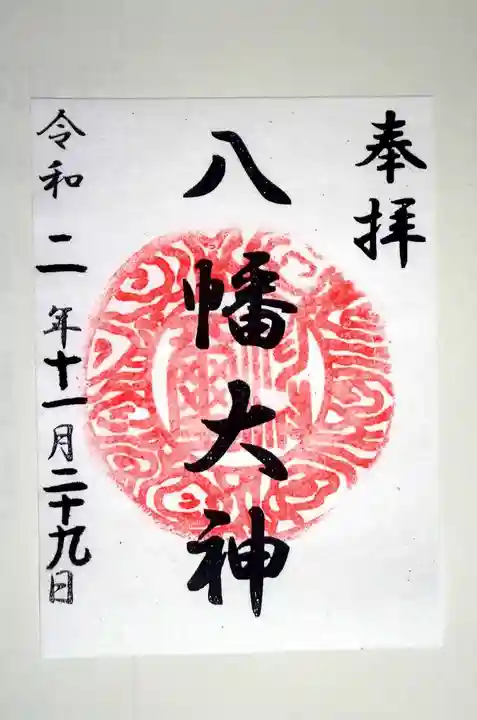 奉拝
八幡大神
令和二年十一月二十九日